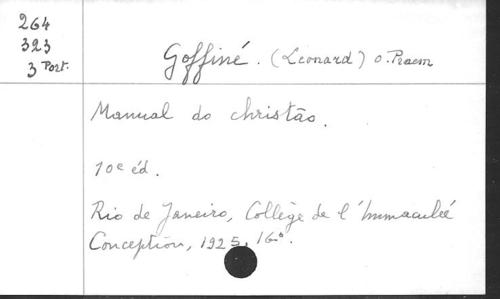 264
323
3 Port.
Goffiné. (Léonard) O. Praem
Manual do christão.
10e éd.
Rio de Janeiro, Collège de l'Immaculée
Conception, 1925, 16°.